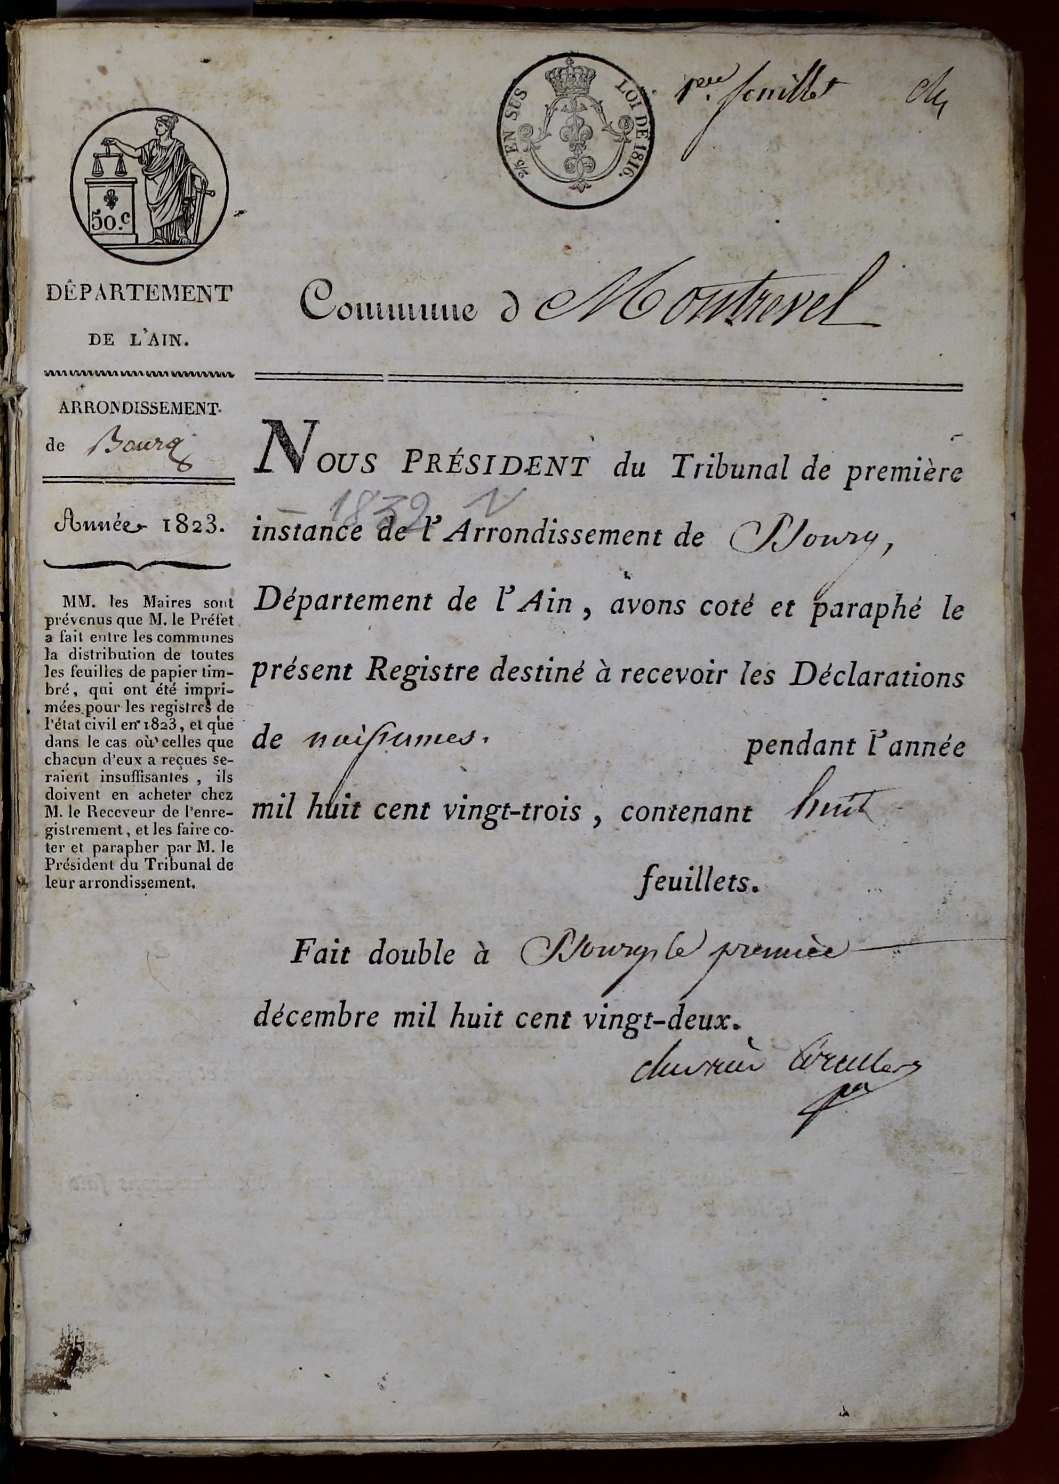 1er. feuillet
2/5 EN SUS
LOI DE 1816.
50.c
DÉPARTEMENT
DE L'AIN.
Commune d Montrevel
ARRONDISSEMENT
de Bourg
Année 1823.
MM. les Maires sont
prévenus que M. le Préfet
a fait entre les communes
la distribution de toutes
les feuilles de papier tim-
bré, qui ont été impri-
mées pour les registres de
l'état civil en 1823, et que
dans le cas où celles que
chacun d'eux a reçues se-
raient insuffisantes, ils
doivent en acheter chez
M. le Receveur de l'enre-
gistrement, et les faire co-
ter et parapher par M. le
Président du Tribunal de
leur arrondissement.
NOUS PRÉSIDENT du Tribunal de première
1832 N
instance de l'Arrondissement de Bourg,
Département de l'Ain, avons coté et paraphé le
présent Registre destiné à recevoir les Déclarations
de naissances. pendant l'année
mil huit cent vingt-trois, contenant huit
feuillets.
Fait double à Bourg, le premier
décembre mil huit cent vingt-deux.